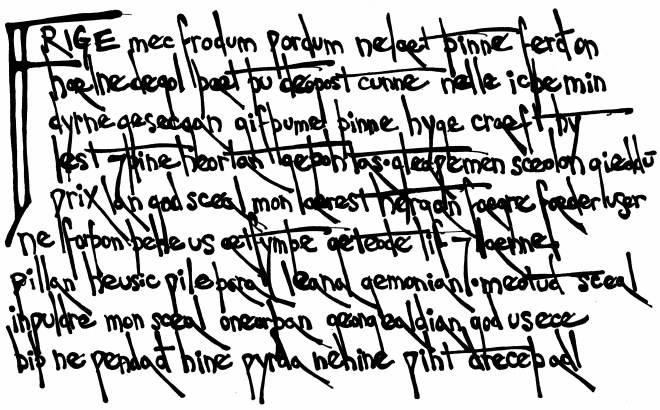 FRIGE mec frodum ƿordum nelæt þinne ferð on
hælne degol þæt þu deopost cunne nelle icþe min
dyrne gesecgan gifþume þinne hyge cræft hy
lest ⁊þine heortan geþohtas·gleaƿemen sceolon gieddū
ƿrixlan god sceal mon ærest hergan fægre fæder user
ne forþon þehe us æt frymþe geteode lif ⁊lænne
ƿillan heusic ƿile þara leana gemonian·meotud sceal
inƿuldre mon sceal oneorþan geong ealdian god us ece
biþ ne ƿendað hine ƿyrda nehine ƿiht dreceþ adl